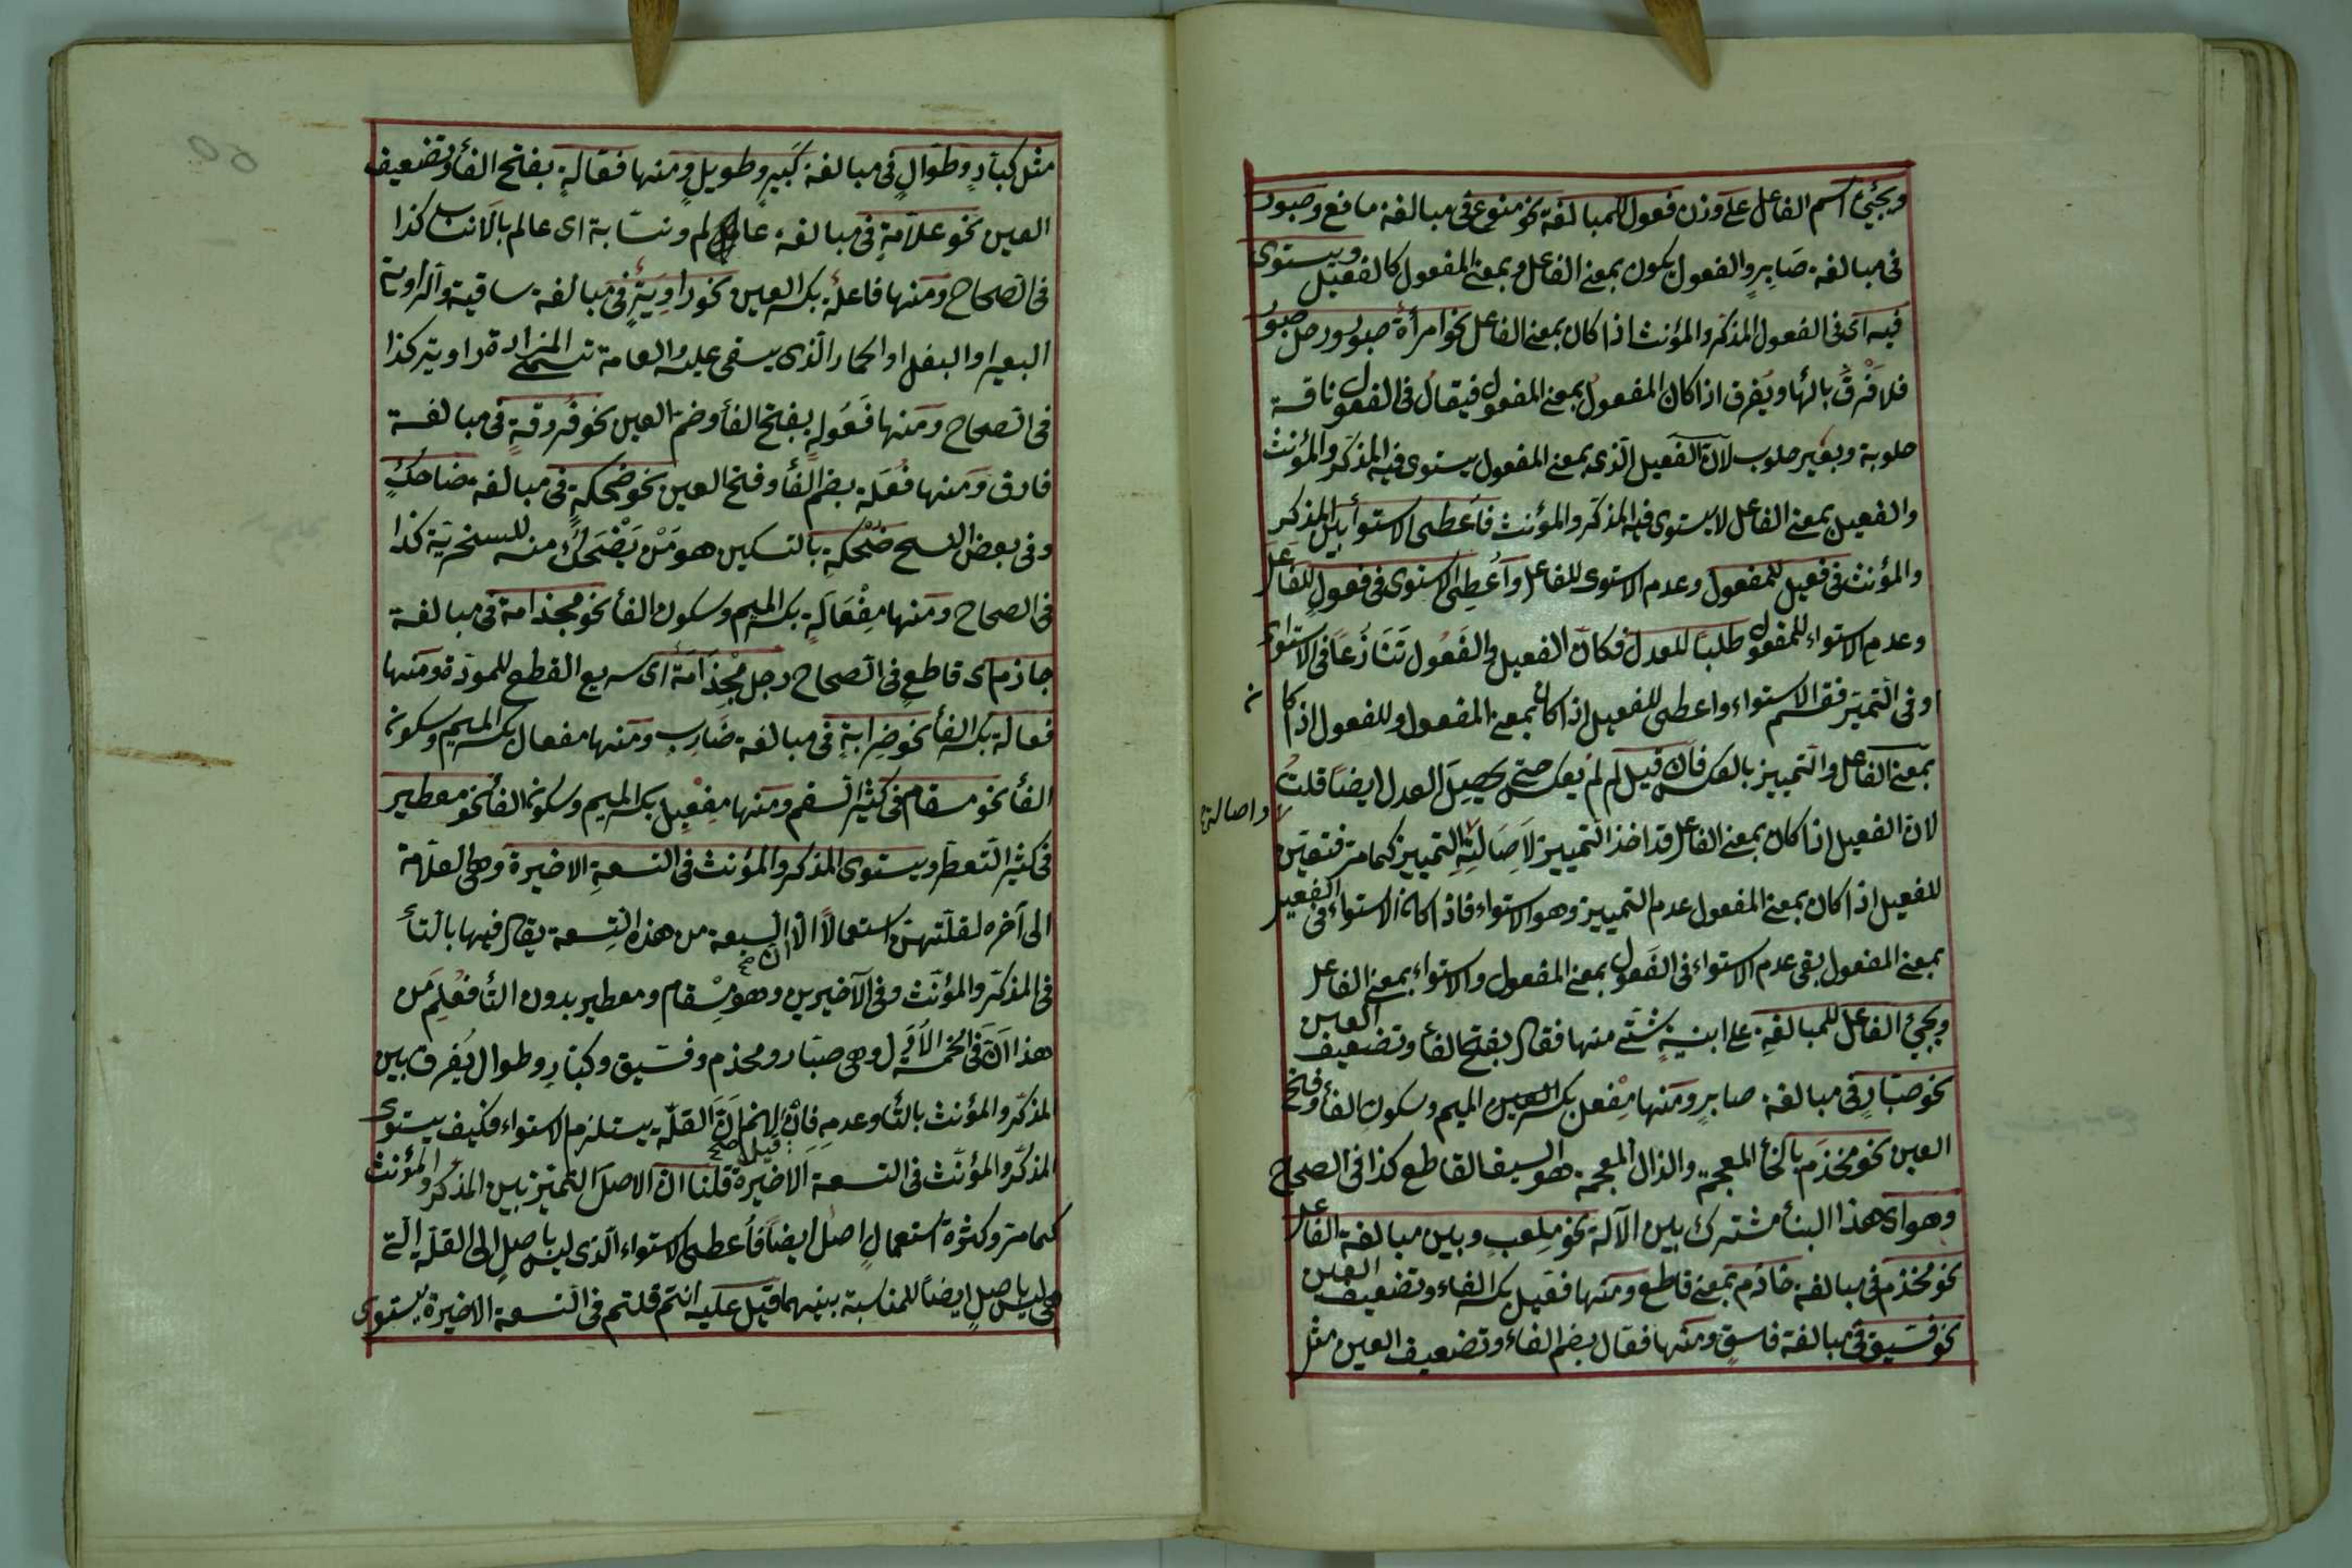 ويجيئ اسم الفاعل على وزن فعول للمبالغة نحو منوع فى مبالغة مانع وصبور
فى مبالغة صَابِرٍ والفعول يكون بمعنى الفاعل وبمعنى المفعول كالفعيل ويستوى
فيه اى فى الفعول المذكر والمؤنث اذا كان بمعنى الفاعل نحو امرأة صبور ورجل صبور
فلا فرق بالهأ ويفرق اذا كان المفعول بمعنى المفعول فيقال فى الفعول ناقة
حلوبة وبعير حلوب لان الفعيل الذى بمعنى المفعول يستوى فيه المذكر والمؤنث
والفعيل بمعنى الفاعل لا يستوى فيه المذكر والمؤنث فاعطى الاستوأ بين المذكر
والمؤنث فى فعيل للمفعول وعدم الاستوى للفاعل واُعطِى الاستوى فى فعولٍ للفاعل
وعدم الاستواء للمفعول طلبًا للعدل فكان الفعيل والفَعُول تَنَازُعًا فى الاستواى
وفى التميّز فقسم الاستواء واعطى للفعيل اذا كان بمعنى المفعول وللفعول اذا كان
بمعنى الفاعل والتمييز بالعكس فان قيل لم لم يعكس حتى يحصل العدل ايضًا قلتُ
لان الفعيل اذا كان بمعنى الفاعل قد اخذ التمييز لاَصَالَتِهِ التمييز كما مر فتعين
واصالة
للفعيل اذا كان بمعنى المفعول عدم التمييز وهو الاستواء فاذا كان الاستواء فى الفعيل
بمعنى المفعول بقى عدم الاستواء فى الفَعول بمعنى المفعول والاستواء بمعنى الفاعل
ويجيئ الفاعل للمبالغة على ابنيةٍ شتّى منها فعّال بفتح الفأ وتضعيف العين
نحو صبّارٍ فى مبالغة صابرٍ ومنها مِفْعل بكسر العين الميم وسكون الفأ وفتح
العين نحو مِخْذَم بالخأ المعجمة والذال المعجمة هو السيف القاطع كذا فى الصحاح
وهو اى هذا البنأ مشترك بين الآلة نحو مِلعبٍ وبين مبالغة الفاعل
نحو مُخذم فى مبالغة خاذم بمعنى قاطع ومنها فعّيل بكسر الفاء وتضعيف العين
نحو فسّيق فى مبالغة فاسق ومنها فعّال بضم الفاء وتضعيف العين مثل
مثل كبّارٍ وطوّالٍ فى مبالغة كَبيرٍ وطويلٍ ومنها فعّالةٍ بفتح الفأ وتضعيف
العين نحو علّامةٍ فى مبالغة عالم ونسّابة اى عالم بالانساب كذا
فى الصحاح ومنها فاعلة بكسر العين نحو راوِيَةٍ فى مبالغة ساقية والراوية
البعير او البغل او الحمار الذى يسقى عليه والعامة تسمى المزادة راوية كذا
فى الصحاح ومنها فَعُولةٍ بفتح الفأ وضم العين نحو فروقةٍ فى مبالغة
فارق ومنها فُعَلة بضم الفأ وفتح العين نحو ضحكةٍ فى مبالغة ضاحكٍ
وفى بعض النسح ضُحْكةٍ بالتسكين هو مَنْ يَضْحَكُ منه للسخرية كذا
فى الصحاح ومنها مِفْعَالَةٍ بكسر الميم وسكون الفأ نحو مجذامة فى مبالغة
جاذم اى قاطعٍ فى الصحاح رجل مِجْذَامَة اى سريع القطع للمودّة ومنها
فعالة بكسر الفأ نحو ضِرابةٍ فى مبالغة ضَارِب ومنها مفعال بكسر الميم وسكون
الفأ نحو مسقام فى كثير السقم ومنها مِفْعِيل بكسر الميم وسكون الفأ نحو معطير
فى كثير التعطر ويستوى المذكر والمؤنث فى التسعةِ الاخيرة وهى العلامة
الى آخره لقلّتهنّ استعمالاً الا ان السبعة من هذه التسعة يقال فيها بالتأ
فى المذكّر والمؤنّث وفى الآخيرين وهو مِسْقام ومعطير بدون التأ فعُلِمَ من
هذا انّ فى الخمسة الاَوّل وهى صبّار ومخذم وفسّيق وكبّارٍ وطوال يُفرق بين
المذكّر والمؤنث بالتأ وعدمهِ فان قيل لا نم انّ القلّة يستلزم الاستواء فكيف يستوى
المذكّر والمؤنّث فى التسعة الاخيرة قلنا ان الاصل التميّز بين المذكر والمؤنث
كما مر وكثرة استعمالٍ اصل ايضًا فاُعطى الاستواء الّذى ليس باصلٍ الى القلّة الّتى
هى ليس باصلٍ ايضًا للمناسبة بينهما قيل عليه انتم قلتم فى التسعة الاخيرة يستوى